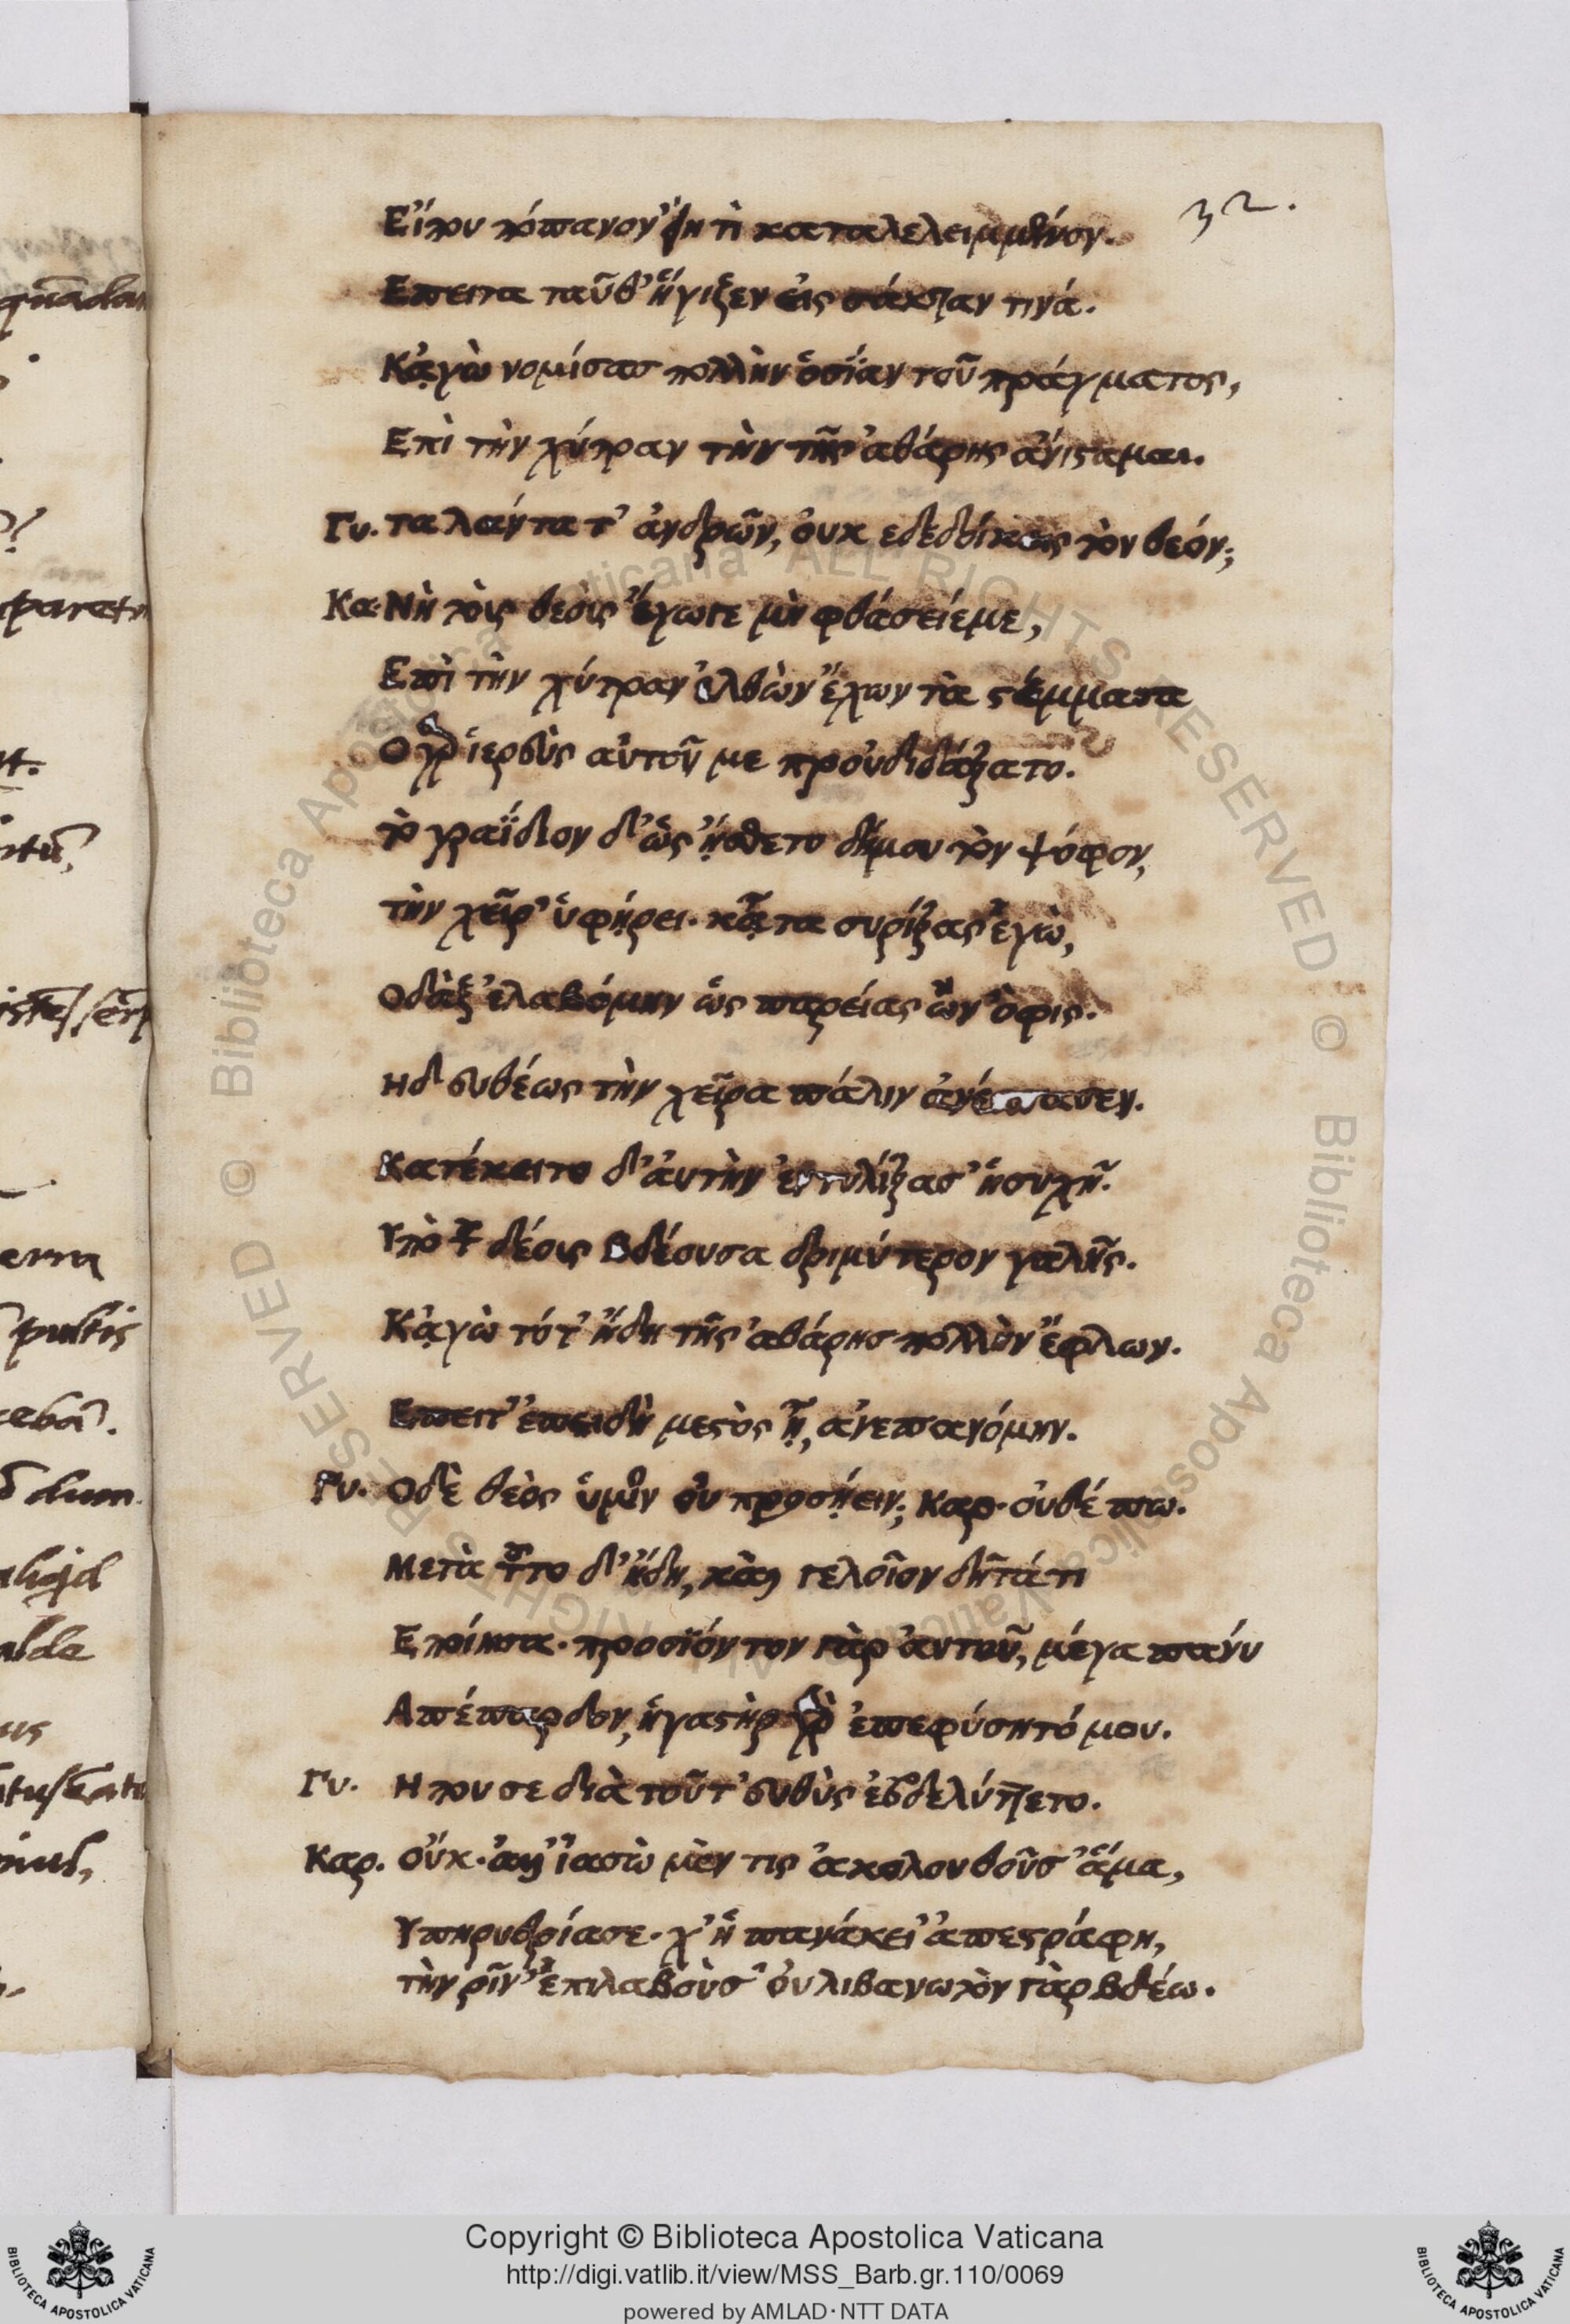 32.
Εἴπου πόπανον ἤη τὶ καταλελειμμένον.
Επειτα ταῦθ' ἥγιξεν εἰς σάκταν τινά.
Κᾀγὼ νομίσασ πολλὴν ὁσΐαν τοῦ πράγματος,
Επὶ τὴν χύτραν τὴν τῆς ἀθάρης ἀνίσταμαι.
Γυ. ταλάντατ' ἀνδρῶν, ὀυκ εδεδοίκεις τὸν θεόν;
Κα. Νὴ τοὺς θεοὺς ἔγωγε μὴ φθάσειέμε,
Επὶ τὴν χύτραν ἐλθὼν ἔχων τὰ στέμματα
Ογὰρ ἱερεὺς αὐτοῦ με προὐδιδάξατο.
τὸ γραΐδιον δ' ὡς ᾔσθετο δήμου τὸν ψόφον,
τὴν χεῖρ' ὑφῄρει. κᾆτα συρίξας ἐγὼ,
Οδὰξ ἐλαβόμην ὡς παρείας ὢν ὄφις.
Ηδ' ευθέως τὴν χεῖρα πάλιν ἀνέσπασεν.
Κατέκειτο δ' ἁυτὴν ἐντυλίξασ' ἡσυχῆ.
Υπὸ τοῦ δέους βδέουσα δριμύτερον γαλῆς.
Κᾀγὼ τότ' ἤδη τῆς ἀθάρησ πολλὴν ἔφλων.
Επειτ' ἐπειδὴ μεστὸς ᾖ, ἀνεπανόμην.
Γυ. Οδὲ θεὸς ὑμῖν ὀυ προσῄειν; Καρ. ὀυδέπω.
Μετὰ τοῦτο δ' ἤδη, καὶ γελοῖον δῆτάτι
Εποίησα. προσϊόντον γὰρ ἀυτοῦ, μέγα πάνυ
Απέπαρδον, ἡγαστὴρ γὰρ ἐπεφύσητό μου.
Γυ. Η που σε διὰ τοῦτ' ευθὺς ἐβδελύττετο.
Καρ. οὔκ. ἀλλ' ἰασὼ μὲν τις ἀκολουθοῦσ' ἅμα,
Υπηρυθρίασε. χ' ἡ πανάκει' ἀπεστράφη,
τὴν ρῖν' ἐπιλαβοὺσ' ὀυλιβανωτὸν γὰρ βδέω.
Copyright © Biblioteca Apostolica Vaticana
http://digi.vatlib.it/view/MSS_Barb.gr.110/0069
powered by AMLAD·NTT DATA